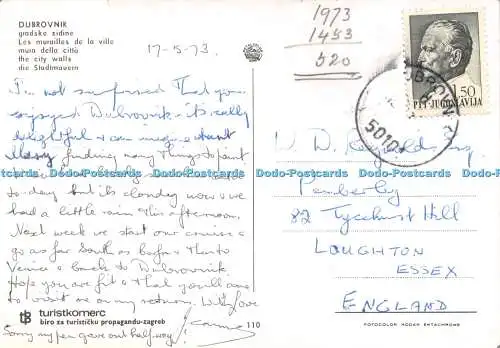 DUBROVNIK
gradske zidine
Les murailles de la ville
mura della città
the city walls
die Stadtmauern
17-5-73.
1973
1453
520
I'm not surprised that you
enjoyed Dubrovnik - it's really
delightful & I can imagine
finding many things to paint
to-day but it's cloudy now & we
had a little rain this afternoon.
Next week we start our cruise &
go as far South as
Venice & back to Dubrovnik.
Hope you are fit & that you'll
to visit me on my return. With Love
Sorry my pen gave out half way!
1.50
PTT JUGOSLAVIJA
DUBROVNIK
W. D. Esq.
Pemberley
82 Tycehurst Hill
LOUGHTON
ESSEX
ENGLAND
Dodo-Postcards Dodo-Postcards Dodo-Postcards Dodo-Postcards Dodo-Postcards
tb turistkomerc
biro za turističku propagandu-zagreb
110
FOTOCOLOR KODAK EKTACHROME